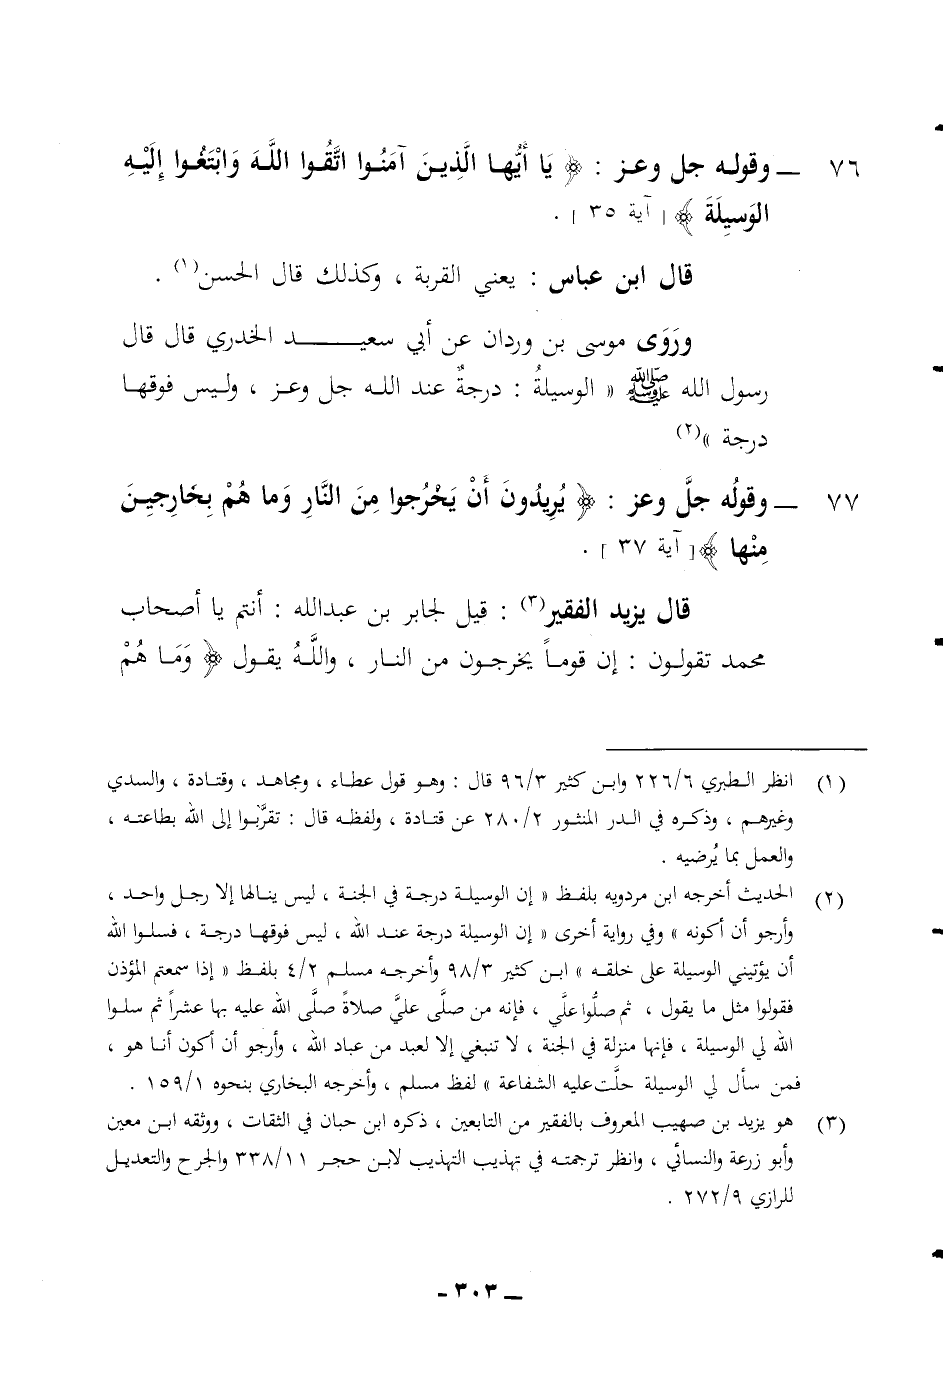 ٧٦ ــ وقوله جل وعز : ﴿ يَا أَيُّها الَّذِينَ آمَنُوا اتَّقُوا اللَّهَ وَابْتَغُوا إِلَيْهِ
الوَسِيلَةَ ﴾ [ آية ٣٥ ] .
قال ابن عباس : يعني القربة ، وكذلك قال الحسن(١) .
ورَوَى موسى بن وردان عن أبي سعيــــد الخدري قال قال
رسول الله ﷺ « الوسيلةُ : درجةٌ عند الله جل وعز ، وليس فوقها
درجة »(٢)
٧٧ ــ وقولُه جلَّ وعز : ﴿ يُرِيدُونَ أَنْ يَخْرُجوا مِنَ النَّارِ وَما هُمْ بِخَارِجِينَ
مِنْها ﴾[ آية ٣٧ ] .
قال يزيد الفقير(٣) : قيل لجابر بن عبدالله : أنتم يا أصحاب
محمد تقولون : إن قوماً يخرجون من النار ، واللَّهُ يقول ﴿ وَمَا هُمْ
(١) انظر الطبري ٢٢٦/٦ وابن كثير ٩٦/٣ قال : وهو قول عطاء ، ومجاهد ، وقتادة ، والسدي
وغيرهم ، وذكره في الدر المنثور ٢٨٠/٢ عن قتادة ، ولفظه قال : تقرَّبوا إلى الله بطاعته ،
والعمل بما يُرضيه .
(٢) الحديث أخرجه ابن مردويه بلفظ « إن الوسيلة درجة في الجنة ، ليس ينالها إلا رجل واحد ،
وأرجو أن أكونه » وفي رواية أخرى « إن الوسيلة درجة عند الله ، ليس فوقها درجة ، فسلوا الله
أن يؤتيني الوسيلة على خلقه » ابن كثير ٩٨/٣ وأخرجه مسلم ٤/٢ بلفظ « إذا سمعتم المؤذن
فقولوا مثل ما يقول ، ثم صلُّوا علَّي ، فإنه من صلَّى عليَّ صلاةً صلَّى الله عليه بها عشراً ثم سلوا
الله لي الوسيلة ، فإنها منزلة في الجنة ، لا تنبغي إلا لعبد من عباد الله ، وأرجو أن أكون أنا هو ،
فمن سأل لي الوسيلة حلَّت عليه الشفاعة » لفظ مسلم ، وأخرجه البخاري بنحوه ١٥٩/١ .
(٣) هو يزيد بن صهيب المعروف بالفقير من التابعين ، ذكره ابن حبان في الثقات ، ووثقه ابن معين
وأبو زرعة والنسائي ، وانظر ترجمته في تهذيب التهذيب لابن حجر ٣٣٨/١١ والجرح والتعديل
للرازي ٢٧٢/٩ .
ــ ٣٠٣ -